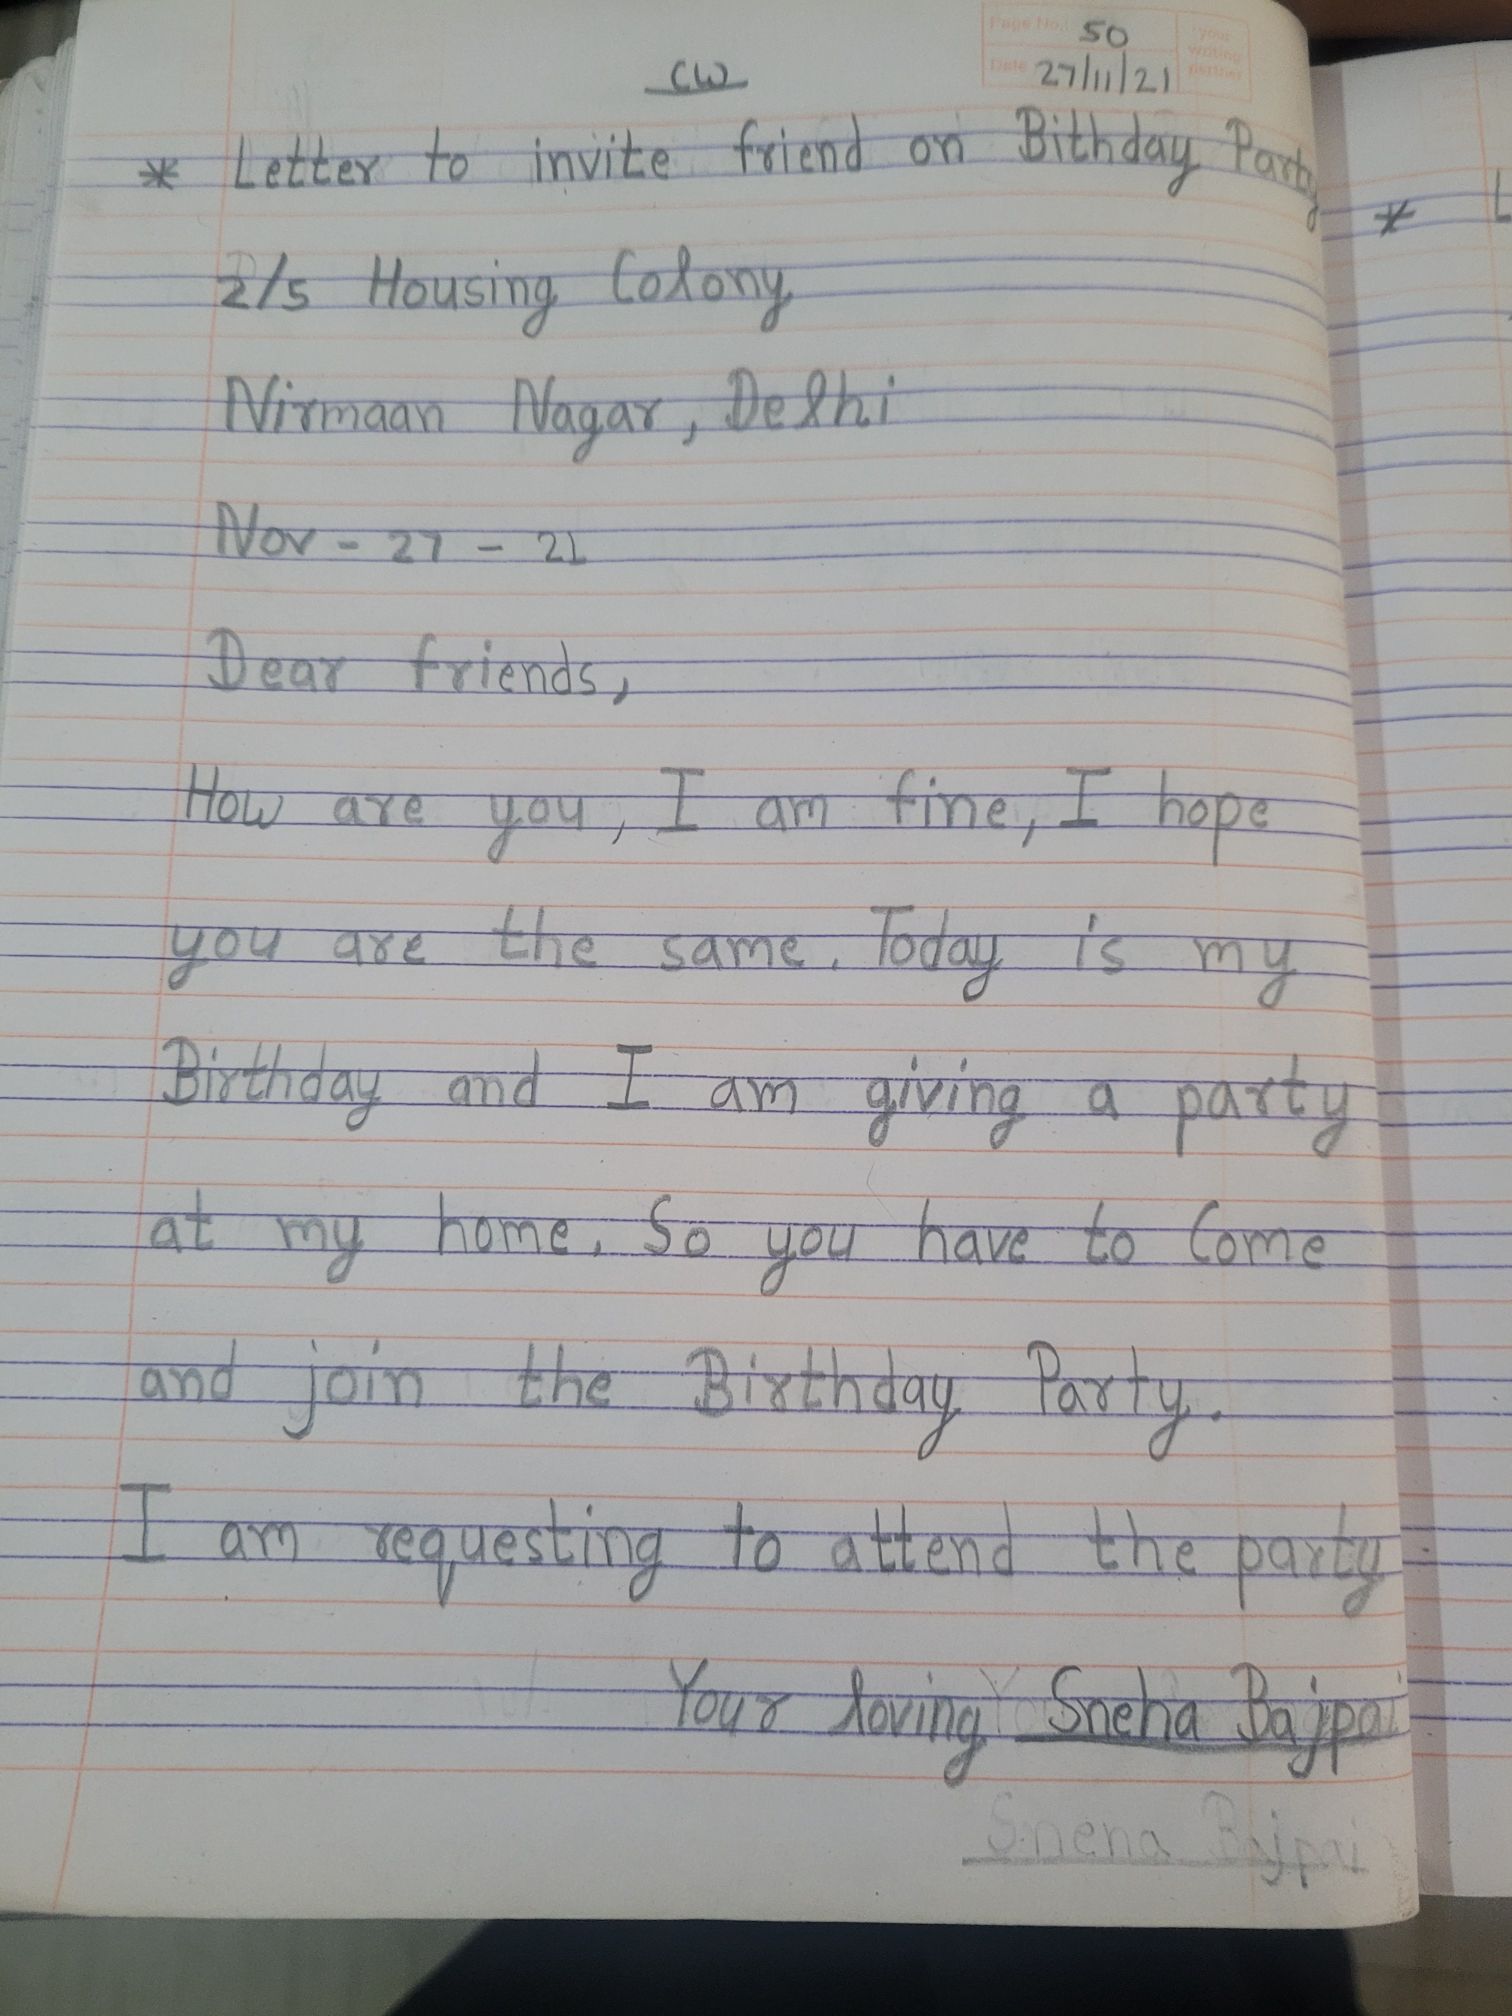 Page No. 50
Date 27/11/21
your writing partner
CW
* Letter to invite friend on Bithday Party
2/5 Housing Colony
Nirmaan Nagar, Delhi
Nov - 27 - 21
Dear friends,
How are you, I am fine, I hope
you are the same. Today is my
Birthday and I am giving a party
at my home. So you have to Come
and join the Birthday Party.
I am requesting to attend the party
Your loving Sneha Bajpai
Sneha Bajpai
* L